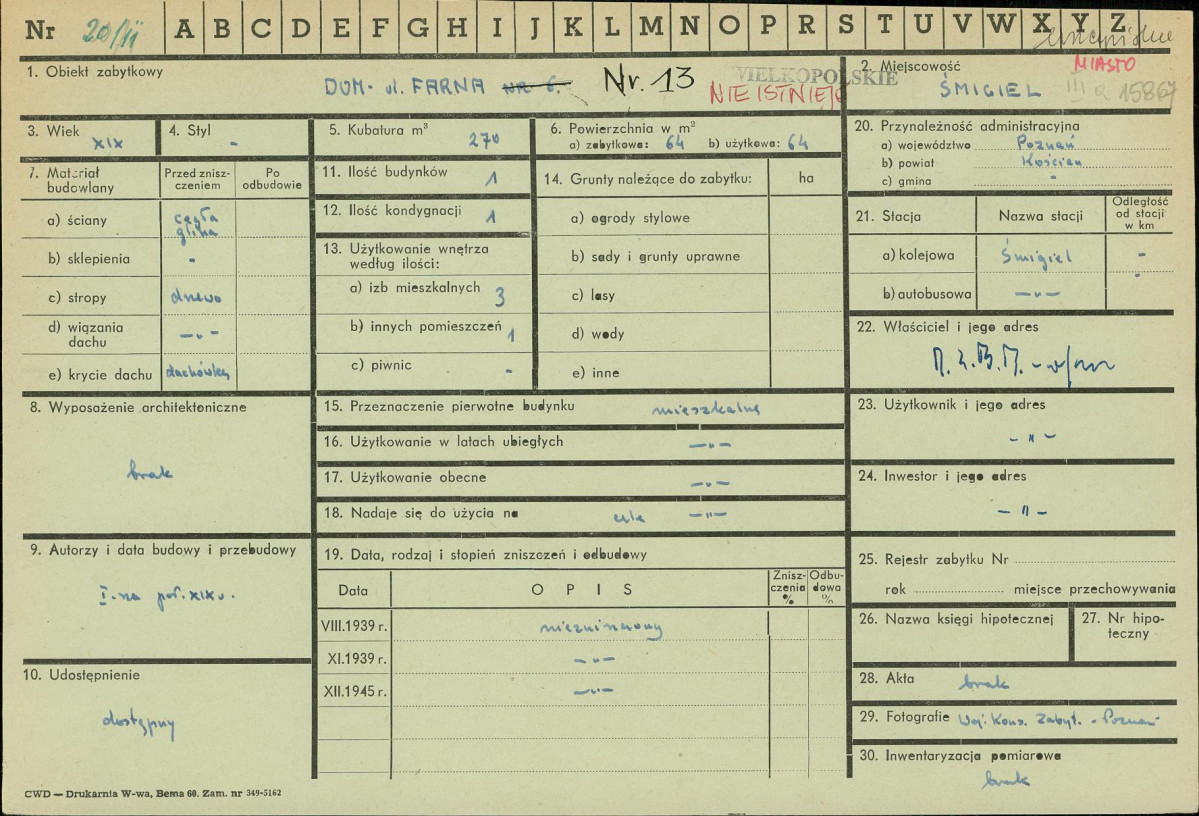 Nr 20/II A B C D E F G H I J K L M N O P R S T U V W X Y Z
1. Obiekt zabytkowy
DOM - ul. FARNA NR 6. Nr. 13
NIE ISTNIEJE
WIELKOPOLSKIE
2. Miejscowość
MIASTO
ŚMIGIEL
III a 15867
3. Wiek
XIX
4. Styl
-
5. Kubatura m³
270
6. Powierzchnia w m²
a) zabytkowa: 64 b) użytkowa: 64
7. Materiał budowlany
Przed zniszczeniem
Po odbudowie
a) ściany
cegła
glina
b) sklepienia -
c) stropy drewo
d) wiązania dachu -"-
e) krycie dachu dachówka
8. Wyposażenie architektoniczne
brak
9. Autorzy i data budowy i przebudowy
I-sza poł. XIX w.
10. Udostępnienie
dostępny
11. Ilość budynków 1
12. Ilość kondygnacji 1
13. Użytkowanie wnętrza
według ilości:
a) izb mieszkalnych 3
b) innych pomieszczeń 1
c) piwnic -
14. Grunty należące do zabytku: ha
a) ogrody stylowe
b) sady i grunty uprawne
c) lasy
d) wody
e) inne
15. Przeznaczenie pierwotne budynku mieszkalne
16. Użytkowanie w latach ubiegłych -"-
17. Użytkowanie obecne -"-
18. Nadaje się do użycia na cele -"-
19. Data, rodzaj i stopień zniszczeń i odbudowy
Data OPIS Zniszczenia % Odbudowa %
VIII.1939 r. niezniszczony
XI.1939 r. -"-
XII.1945 r. -"-
20. Przynależność administracyjna
a) województwo Poznań
b) powiat Kościan
c) gmina -
21. Stacja Nazwa stacji Odległość od stacji w km
a) kolejowa Śmigiel -
b) autobusowa -"- -
22. Właściciel i jego adres
23. Użytkownik i jego adres
-"-
24. Inwestor i jego adres
-"-
25. Rejestr zabytku Nr
rok miejsce przechowywania
26. Nazwa księgi hipotecznej
27. Nr hipoteczny
28. Akta brak
29. Fotografie Woj. Kons. Zabyt. - Poznań
30. Inwentaryzacja pomiarowa
brak
CWD — Drukarnia W-wa, Bema 60. Zam. nr 349-5162